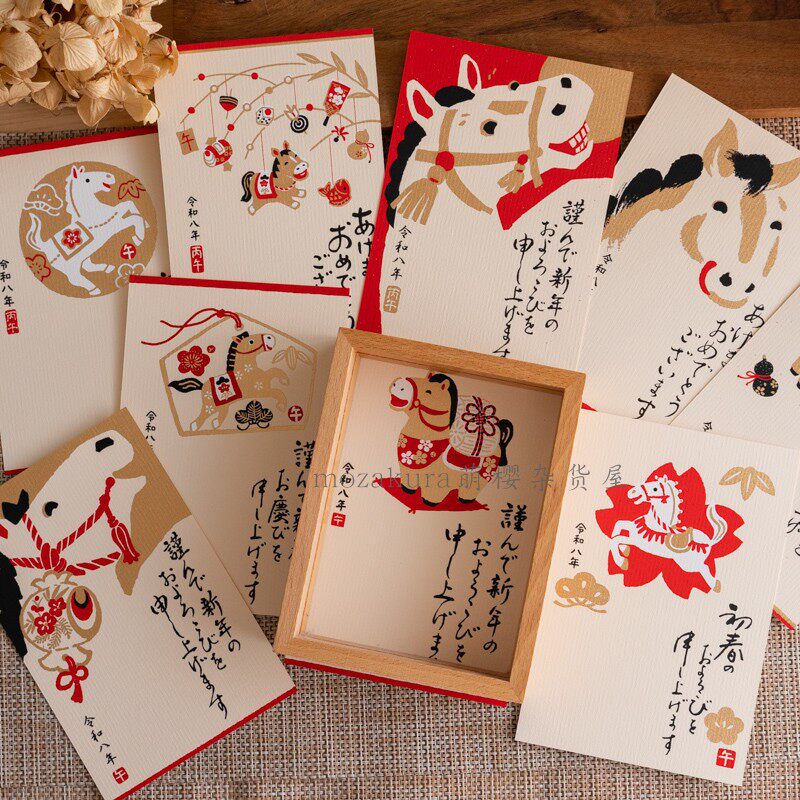 令和八年
午
丙午
午
令和八年
丙午
あけま
おめで
ござ
謹んで新年の
およろこびを
申し上げます
令和八年
丙午
あけま
おめでとう
ございます
令和
午
令和八
謹んで新
お慶びを
申し上げます
謹んで新年の
およろこびを
申し上げます
令和八年
午
謹んで新年の
およろこびを
申し上げま
令和八年
午
令和八年
初春の
およろこびを
申し上げます
午
mozakura萌樱杂货屋